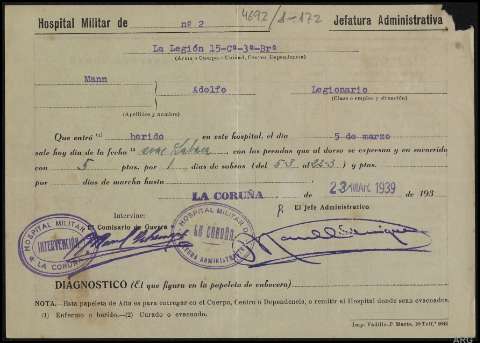 4692/1-172
Hospital Militar de nº 2 Jefatura Administrativa
La Legión 15-Cª-3ª-Brª
(Arma o Cuerpo - Unidad, Centro Dependencia)
Mann Adolfo Legionario
(Apellidos y nombre) (Clase o empleo y situación)
Que entró (1) herido en este hospital, el día 5 de marzo
sale hoy día de la fecha (2) con las prendas que al dorso se expresan y en socorrido
con 5 ptas. por 1 días de sobras (del 5-3 al 23-3) y ptas.
por días de marcha hasta
LA CORUÑA de 23 MAR. 1939 de 193
Intervine: El Jefe Administrativo
El Comisario de Guerra
HOSPITAL MILITAR
INTERVENCIÓN
LA CORUÑA
HOSPITAL MILITAR DE
LA CORUÑA
JEFATURA ADMINISTRATIVA
DIAGNOSTICO (El que figura en la papeleta de cabecera)
NOTA. Esta papeleta de Alta es para entregar en el Cuerpo, Centro o Dependencia, o remitir al Hospital donde sean evacuados.
(1) Enfermo o herido.—(2) Curado o evacuado.
ARG